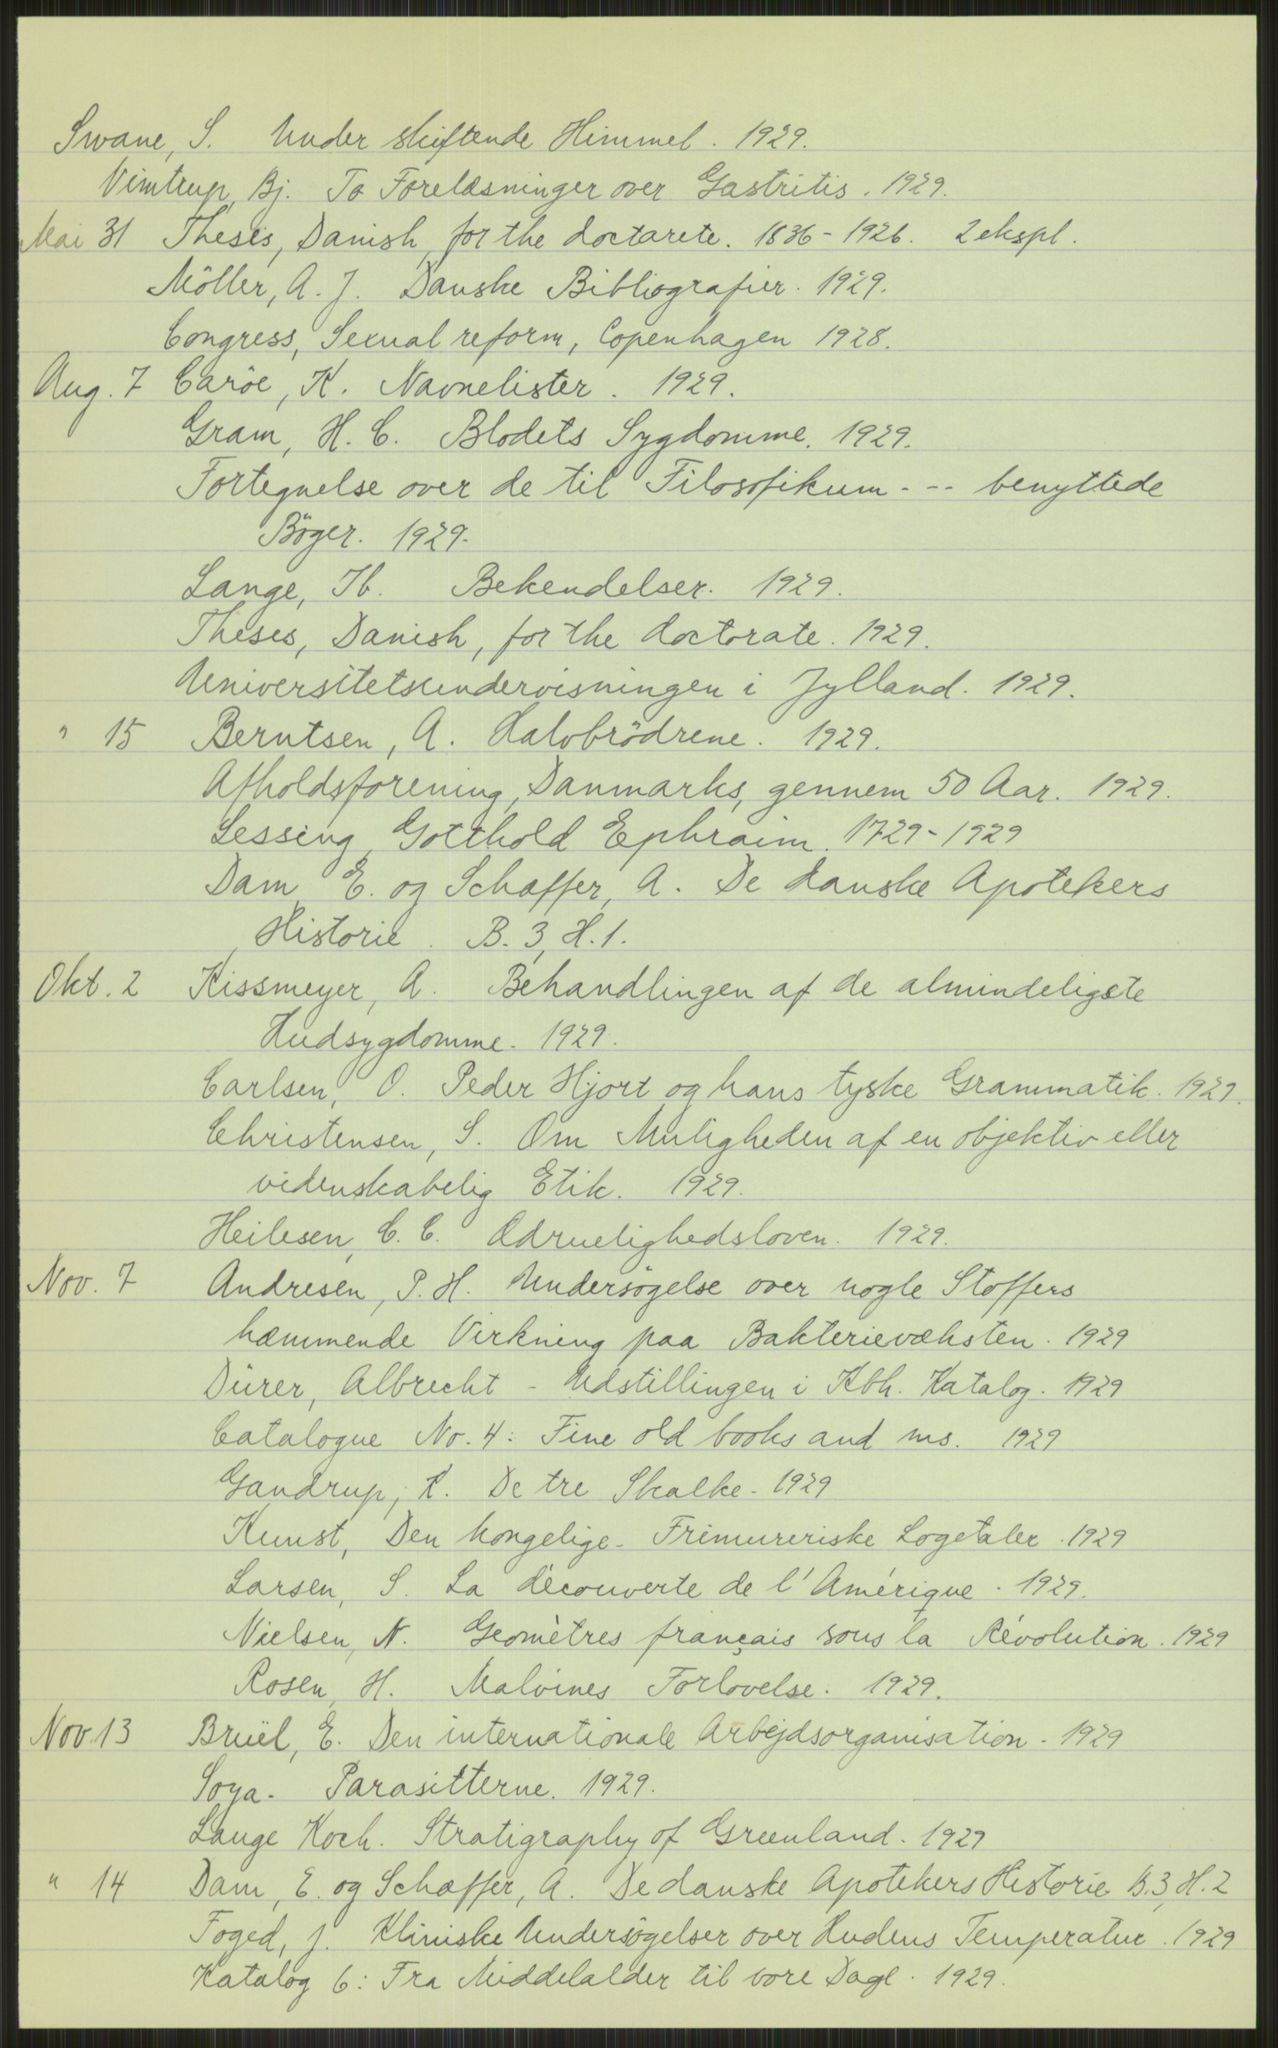 Swane, S. Under skiftende Himmel. 1929.
Vimtrup, Bj. To Forelæsninger over Gastritis. 1929.
Mai 31 Theses, Danish, for the doctarete. 1836-1926. 2 ekspl.
Möller, A. J. Danske Bibliografier. 1929.
Congress, Sexual reform, Copenhagen 1928.
Aug. 7 Caröe, K. Navnelister. 1929.
Gram, H. C. Blodets Sygdomme. 1929.
Fortegnelse over de til Filosofikum --- benyttede
Böger. 1929.
Lange, Ib. Bekendelser. 1929.
Theses, Danish, for the doctorate. 1929.
Universitetsundervisningen i Jylland. 1929.
" 15 Berntsen, A. Halvbrödrene. 1929.
Afholdsforening, Danmarks, gennem 50 Aar. 1929.
Lessing, Gotthold Ephraim. 1729-1929
Dam, E. og Schæffer, A. De danske Apotekers
Historie. B. 3, H. 1.
Okt. 2 Kissmeyer, A. Behandlingen af de almindeligste
Hudsygdomme. 1929.
Carlsen, O. Peder Hjort og hans tyske Grammatik. 1929.
Christensen, S. Om Muligheden af en objektiv eller
videnskabelig Etik. 1929.
Heilesen, C. C. Ædruelighedsloven. 1929.
Nov. 7 Andresen, P. H. Undersögelse over nogle Stoffers
hæmmende Virkning paa Bakterievæksten. 1929
Dürer, Albrecht - Udstillingen i Kbh. Katalog. 1929
Catalogue No. 4: Fine old books and ms. 1929
Gandrup, K. De tre Skalke. 1929
Kunst, Den kongelige - Frimureriske Logetaler. 1929
Larsen, S. La découverte de l'Amérique. 1929.
Nielsen, N. Geomètres français sous la Révolution. 1929
Rosen, H. Malvines Forlovelse. 1929.
Nov. 13 Brüel, E. Den internationale Arbejdsorganisation. 1929
Soya. Parasitterne. 1929.
Lauge Koch. Stratigraphy of Greenland. 1929
" 14 Dam, E. og Schæffer, A. De danske Apotekers Historie B. 3, H. 2
Foged, J. Kliniske Undersögelser over Hudens Temperatur. 1929
Katalog 6: Fra Middelalder til vore Dage. 1929.